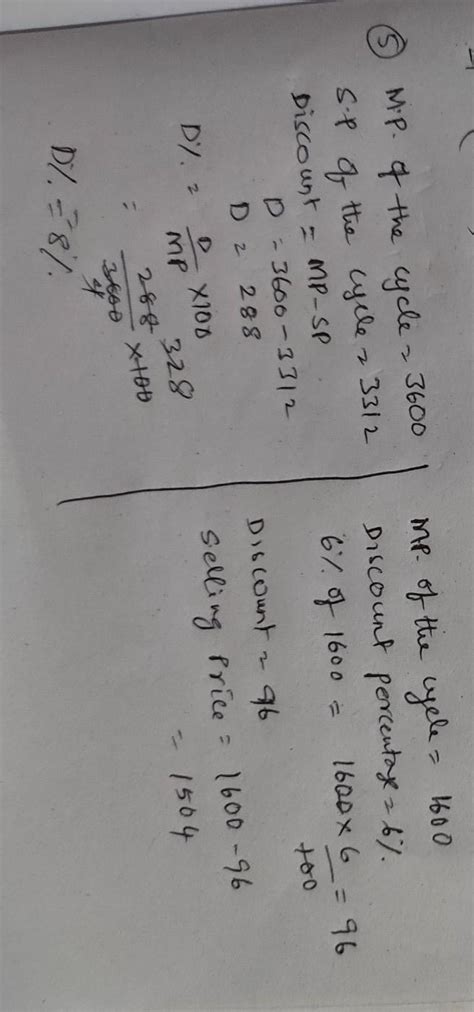 ⑤ M.P. of the cycle = 3600
S.P of the cycle = 3312
Discount = MP-SP
D = 3600-3312
D = 288
D% = D/MP ×100
= 288/3600 ×100
328
4
D% = 8%.
MP. of the cycle = 1600
Discount percentage = 6%.
6% of 1600 = 1600×6/100 = 96
Discount = 96
Selling Price = 1600-96
= 1504